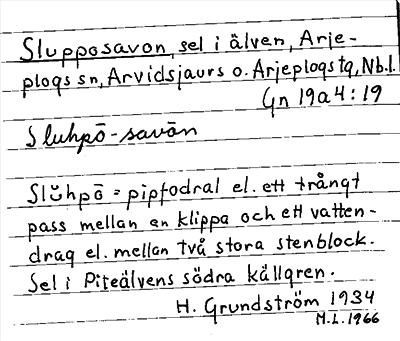 Slupposavon, sel i älven, Arje-
plogs sn, Arvidsjaurs o. Arjeplogs tg, Nb.l.
Gn 19a4:19
Sluhpō-savōn
Slŭhpō = pipfodral el. ett trångt
pass mellan en klippa och ett vatten-
drag el. mellan två stora stenblock.
Sel i Piteälvens södra källgren.
H. Grundström 1934
M.L. 1966